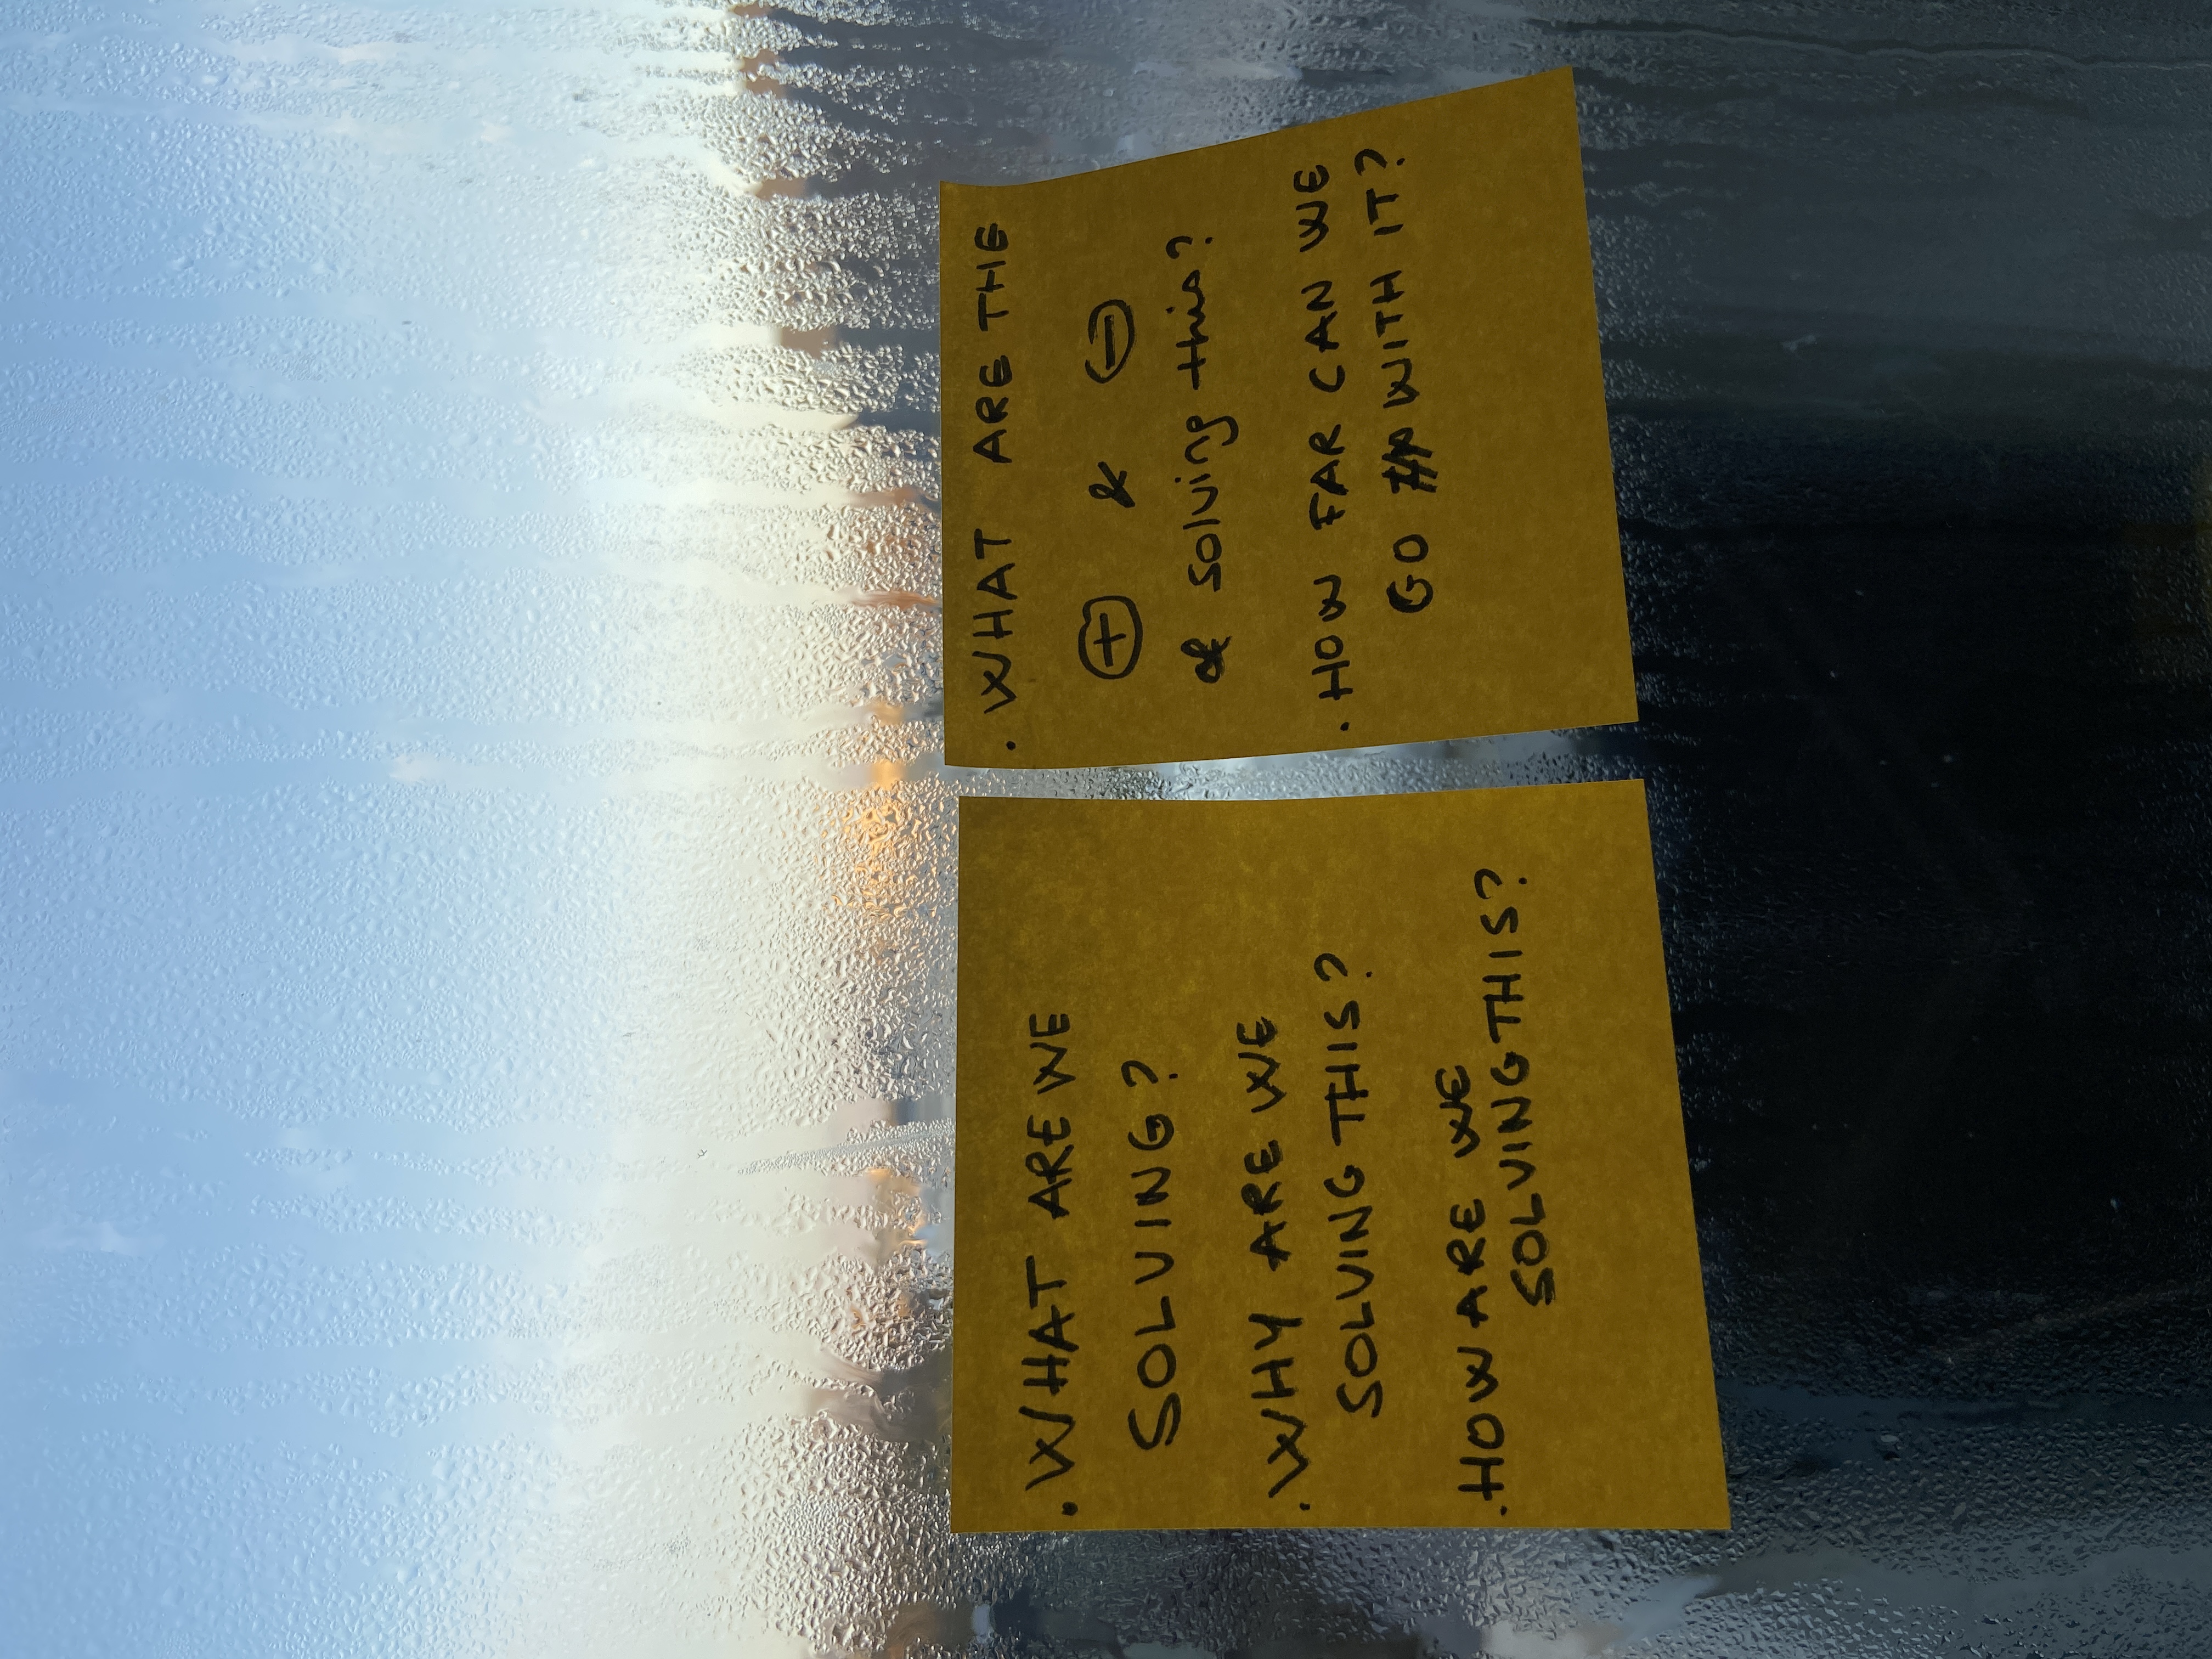 . WHAT ARE WE
SOLVING?
. WHY ARE WE
SOLVING THIS?
. HOW ARE WE
SOLVING THIS?
. WHAT ARE THE
⊕ & ⊖
of solving this?
. HOW FAR CAN WE
GO WITH IT?